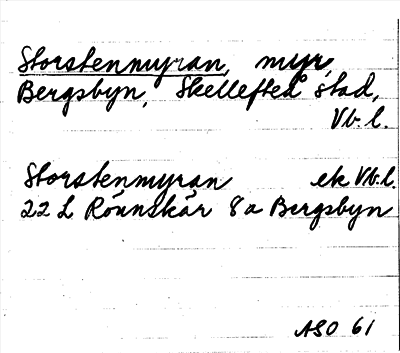 Storstenmyran, myr,
Bergsbyn, Skellefteå stad,
Vb. l.
Storstenmyran ek Vb. l.
22 L Rönnskär 8a Bergsbyn
ASO 61